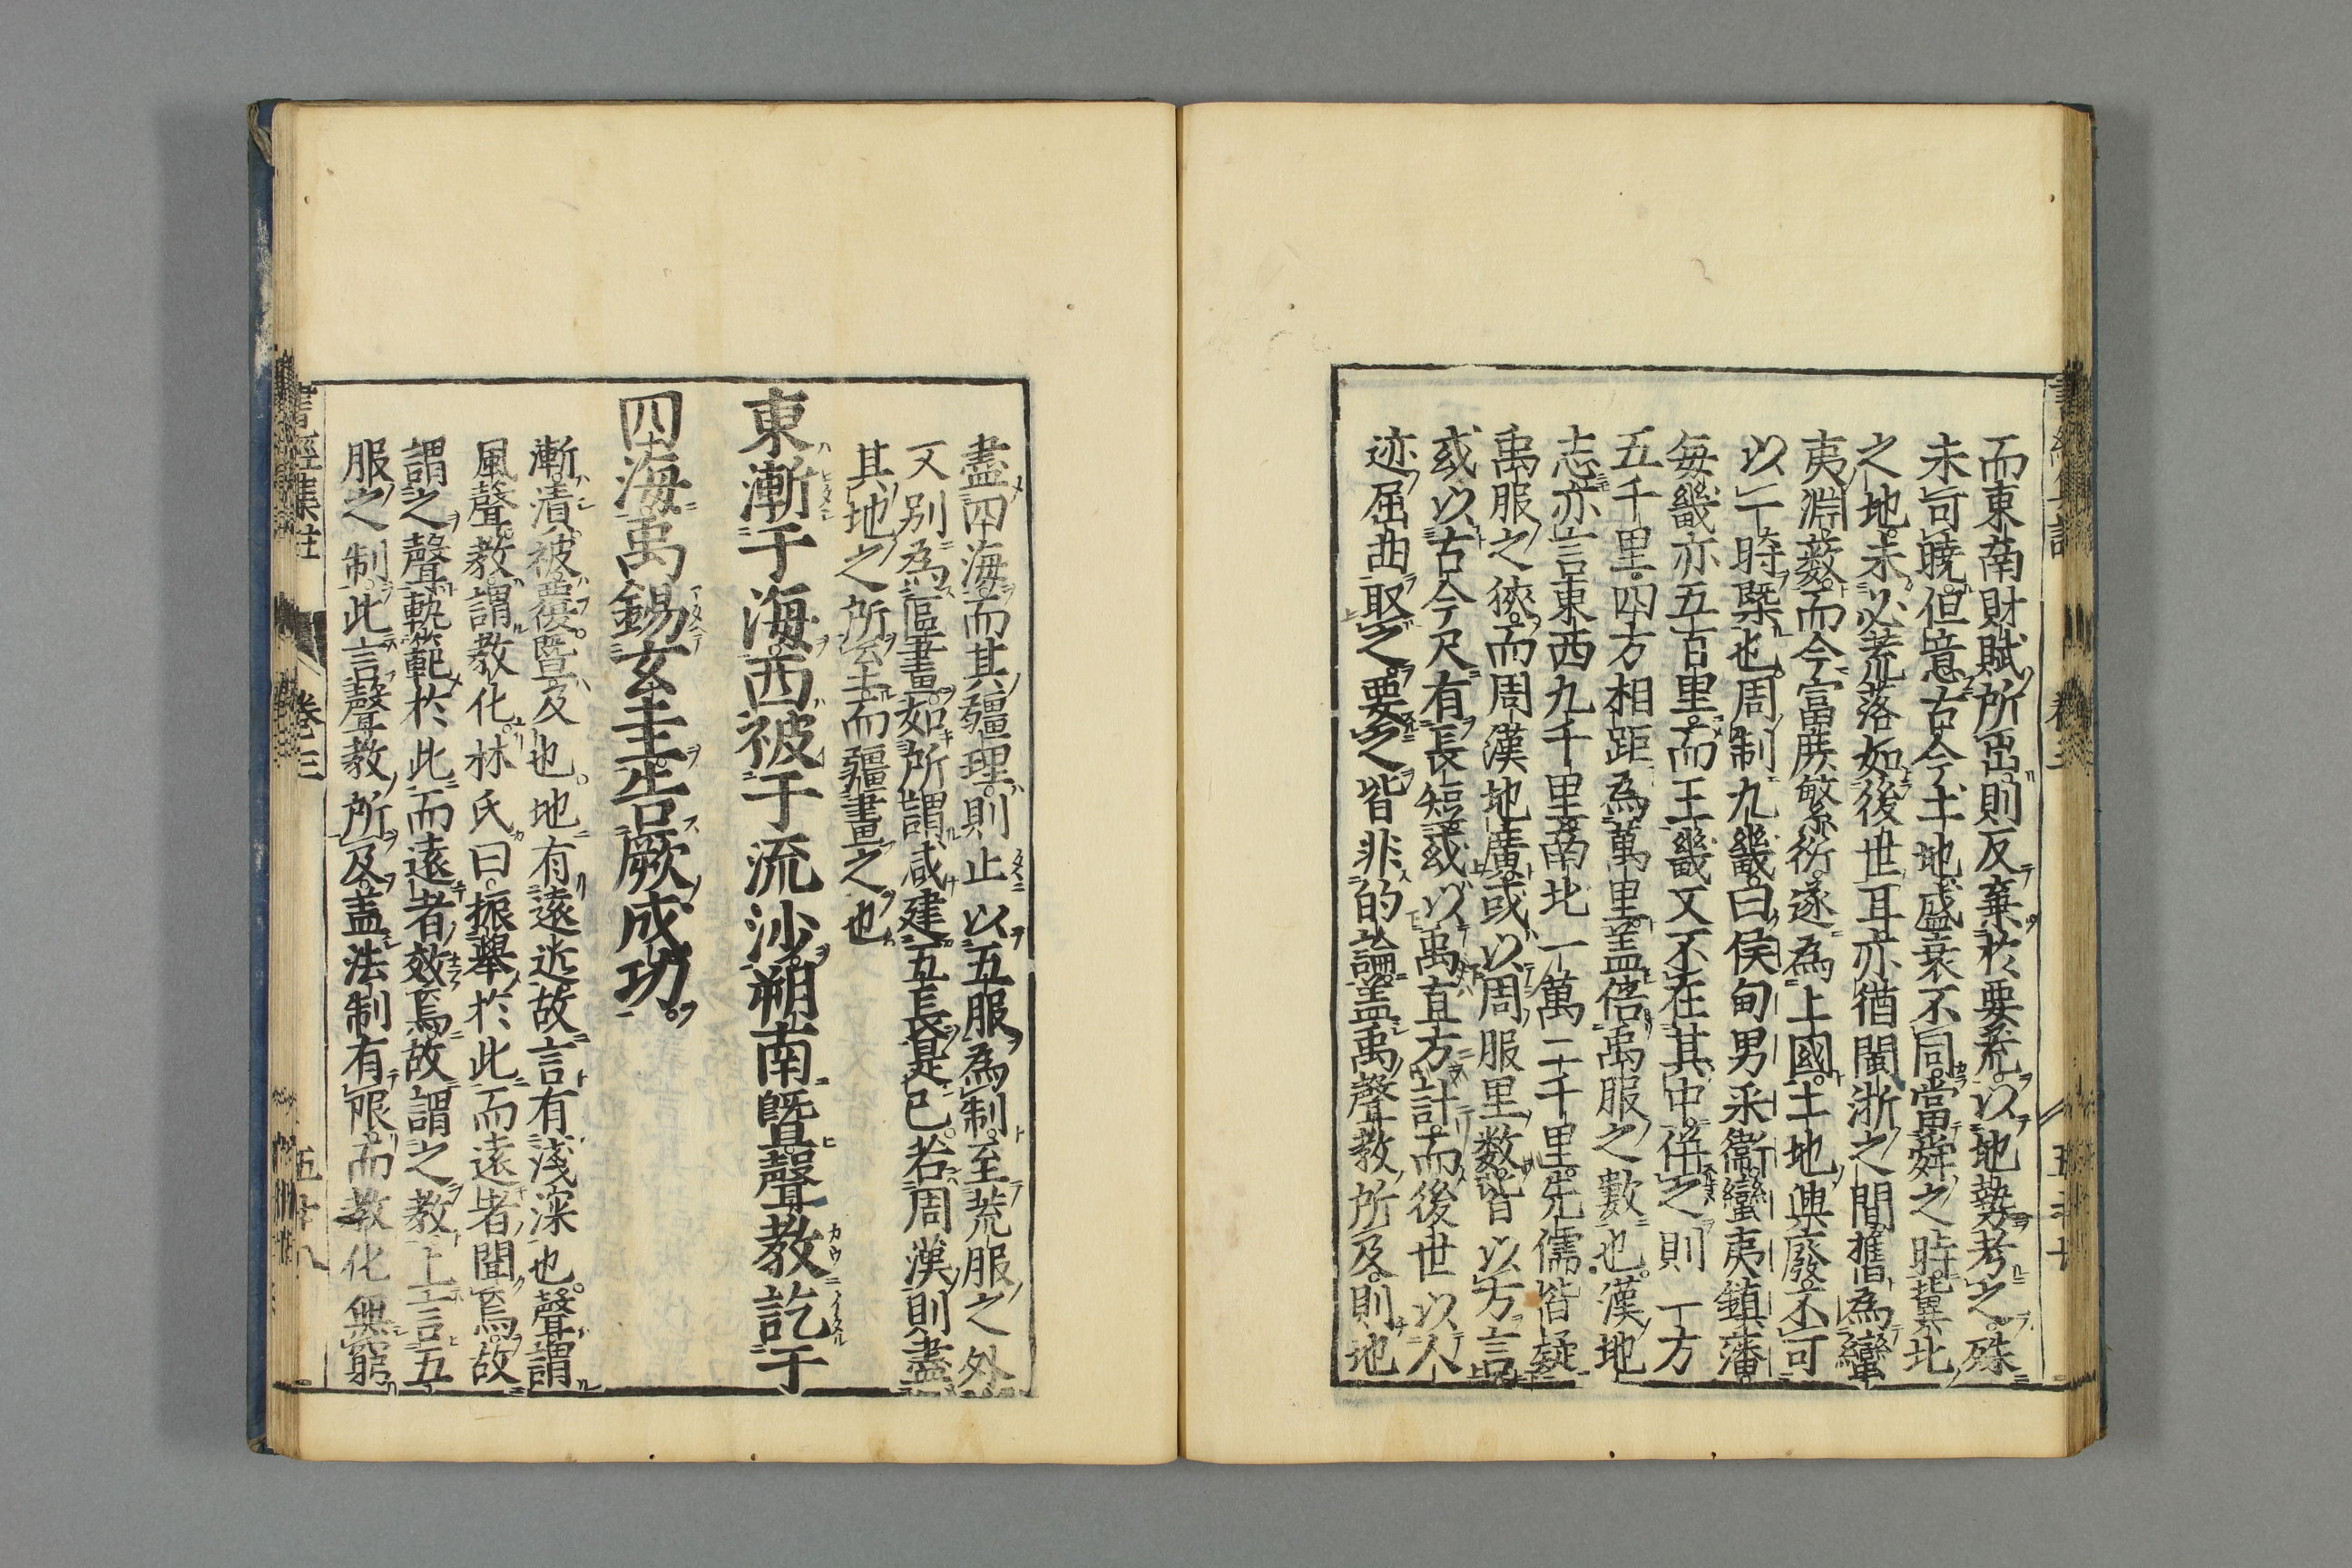 而東南財賦所出則反棄於要荒以地勢考之殊
未可曉但意古今土地盛衰不同當舜之時冀北
之地未必荒落如後世耳亦猶閩浙之間舊為蠻
夷淵藪而今富庶繁衍遂為上國土地興廢不可
以一時槩也周制九畿曰侯甸男采衛蠻夷鎮藩
每畿亦五百里而王畿又不在其中併之則一方
五千里四方相距為萬里蓋倍禹服之數也漢地
志亦言東西九千里南北一萬三千里先儒皆疑
禹服之狹而周漢地廣或以周服里数皆以方言
或以古今尺有長短或以禹直方計而後世以人
迹屈曲取之要之皆非的論蓋禹聲教所及則地
盡四海而其疆理則止以五服為制至荒服之外
又別為區畫如所謂咸建五長是已若周漢則盡
其地之所至而疆畫之也
東漸于海西被于流沙朔南曁聲教訖于
四海禹錫玄圭告厥成功
漸漬被覆暨及也地有遠近故言有淺深也聲謂
風聲教謂教化林氏曰振舉於此而遠者聞焉故
謂之聲軌範於此而遠者效焉故謂之教上言五
服之制此言聲教所及蓋法制有限而教化無窮
書經集註 卷三 五十八